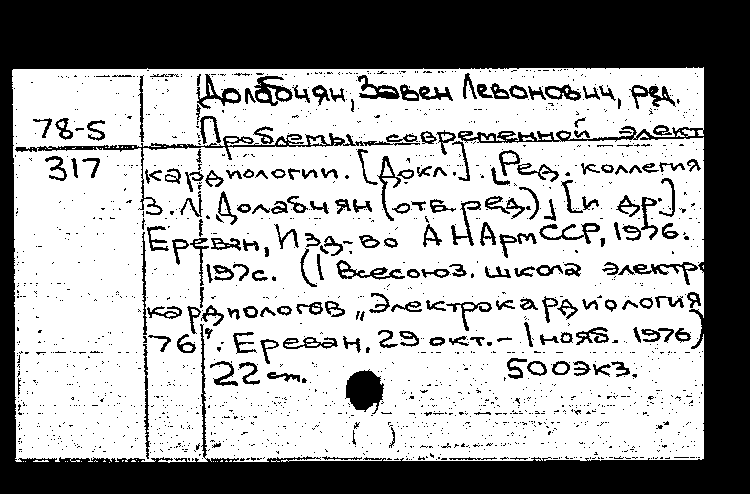 Долабчян, Завен Левонович, ред.
78-5
Проблемы современной элект
317
кардиологии. [Докл.]. [Ред. коллегия
З.Л. Долабчян (отв. ред.), [и др.].
Ереван, Изд-во АНАрмССР, 1976.
197с. (I Всесоюз. школа электро
кардиологов „Электрокардиология
76". Ереван, 29 окт.- 1 нояб. 1976)
22 см. 500экз.